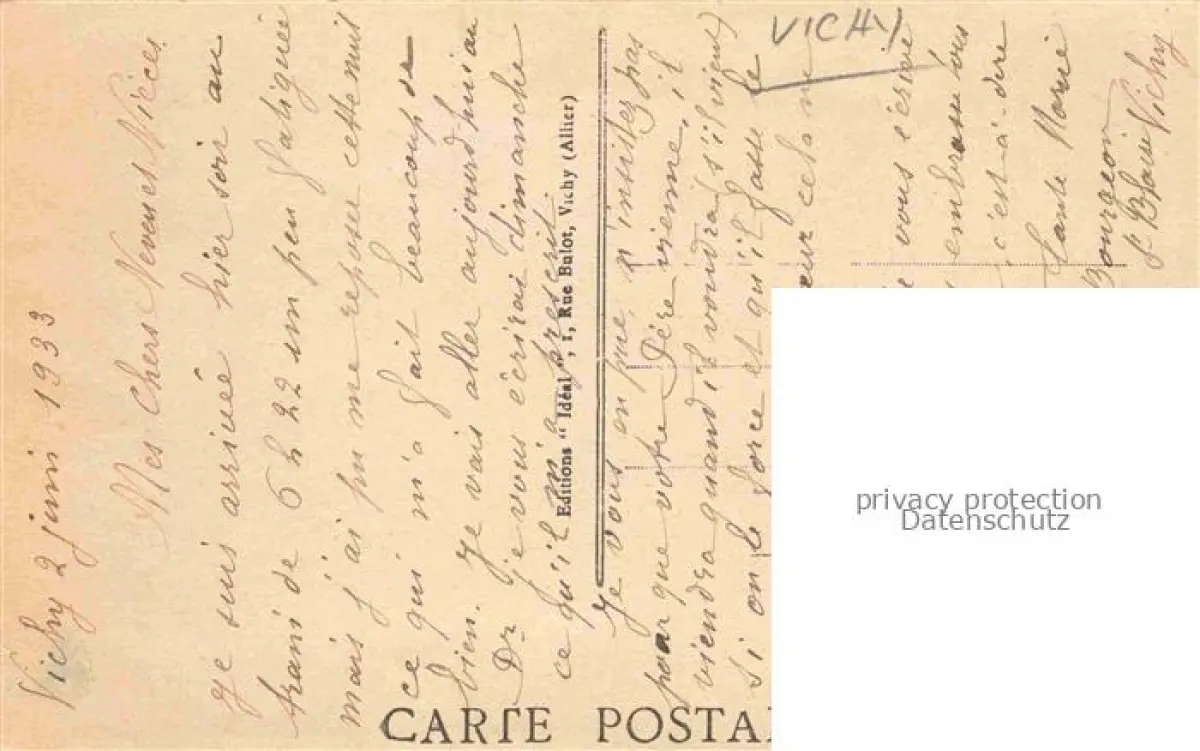 VICHY
Vichy 2 juin 1933
Mes Chers Neveu et Nièces
Je suis arrivée hier soir au
train de 6 h 22 un peu fatiguée
mais j'ai pu me reposer cette nuit
ce qui m'a fait beaucoup de
bien. Je vais aller aujourd'hui au
Dr je vous écrirai dimanche
ce qu'il m'a prescrit
Editions " Idéal ", 1, Rue Bulot, Vichy (Allier)
Je vous en prie n'insistez pas
pour que votre Père vienne, il
viendra quand il voudra (s'il vient)
si on le force et qu'il fasse le
cela
vous écrire
embrasse
c'est-à-dire
Tante Marie
Bourgeon
St Blaise Vichy
CARTE POSTA
privacy protection
Datenschutz